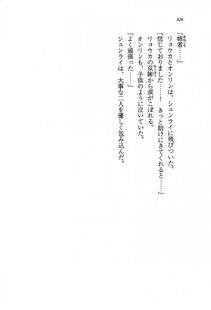 324
「姉君……」
リョウカとオンリンは、シュンライに飛びついた。
「信じておりました……！ きっと助けにきてくれると……」
リョウカの双眸から涙がこぼれる。
オンリンも、子供のように泣いていた。
「よく頑張った……」
シュンライは、大事な二人を優しく包み込んだ。